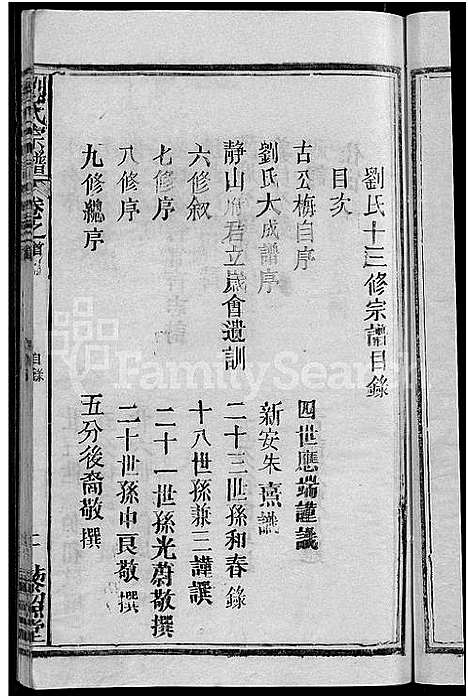 劉氏十三修宗譜目錄
目次
古公梅自序 四世應端謹識
劉氏大成譜序 新安朱熹識
靜山府君立歲會遺訓 二十三世孫和春錄
六修敘 十八世孫兼三謹譔
七修序 二十一世孫光蔚敬撰
八修序 二十世孫中良敬撰
九修總序 五分後裔敬撰
劉氏宗譜 卷之首
目錄
FamilySearch